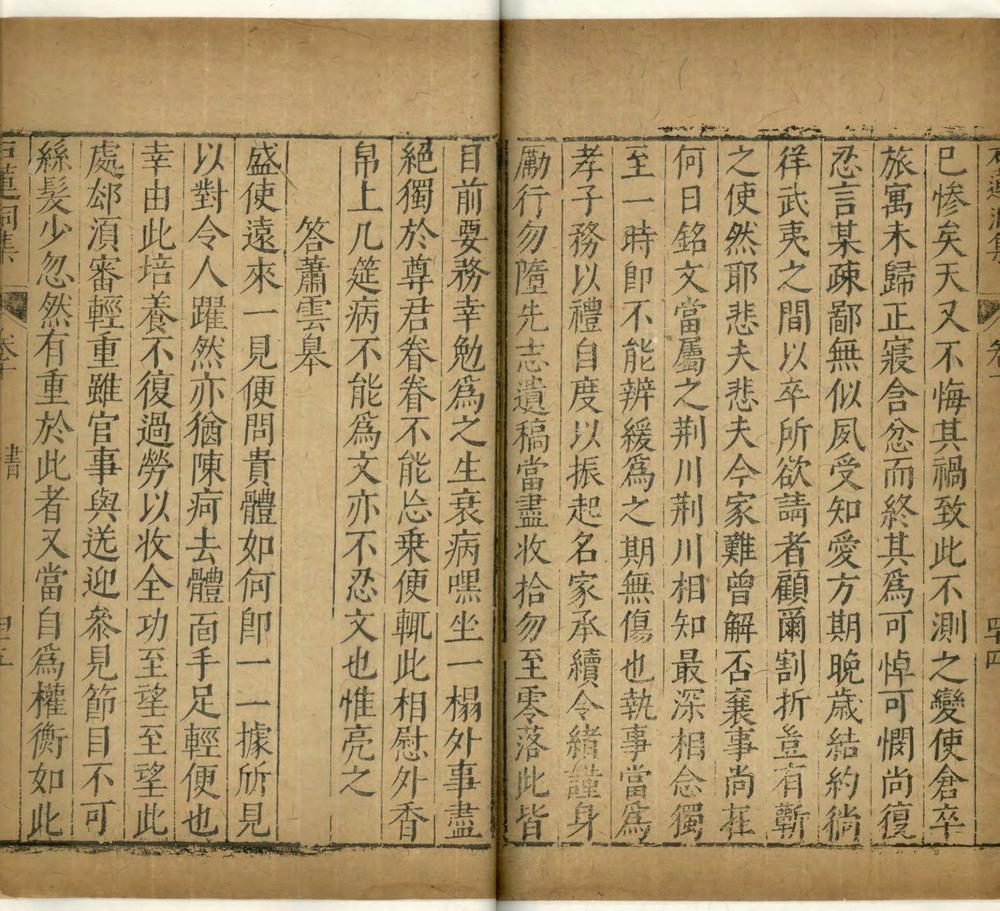 石蓮洞集 卷十 四十四
已慘矣天又不悔其禍致此不測之變使倉卒
旅寓未歸正寢含忿而終其爲可悼可憫尚復
忍言某疎鄙無似夙受知愛方期晚歲結約徜
徉武夷之間以卒所欲請者顧爾割折豈有蘄
之使然耶悲夫悲夫今家難曾解否襄事尚在
何日銘文當屬之荆川荆川相知最深相念獨
至一時卽不能辨緩爲之期無傷也執事當爲
孝子務以禮自度以振起名家承續令緒謹身
勵行勿墮先志遺稿當盡收拾勿至零落此皆
目前要務幸勉爲之生衰病嘿坐一榻外事盡
絕獨於尊君眷眷不能忘乗便輒此相慰外香
帛上几筵病不能爲文亦不忍文也惟亮之
答蕭雲皋
盛使遠來一見便問貴體如何卽一一據所見
以對令人躍然亦猶陳疴去體面手足輕便也
幸由此培養不復過勞以收全功至望至望此
處却湏審輕重雖官事與送迎叅見節目不可
絲髮少忽然有重於此者又當自爲權衡如此
石蓮洞集 卷十 書 四十五